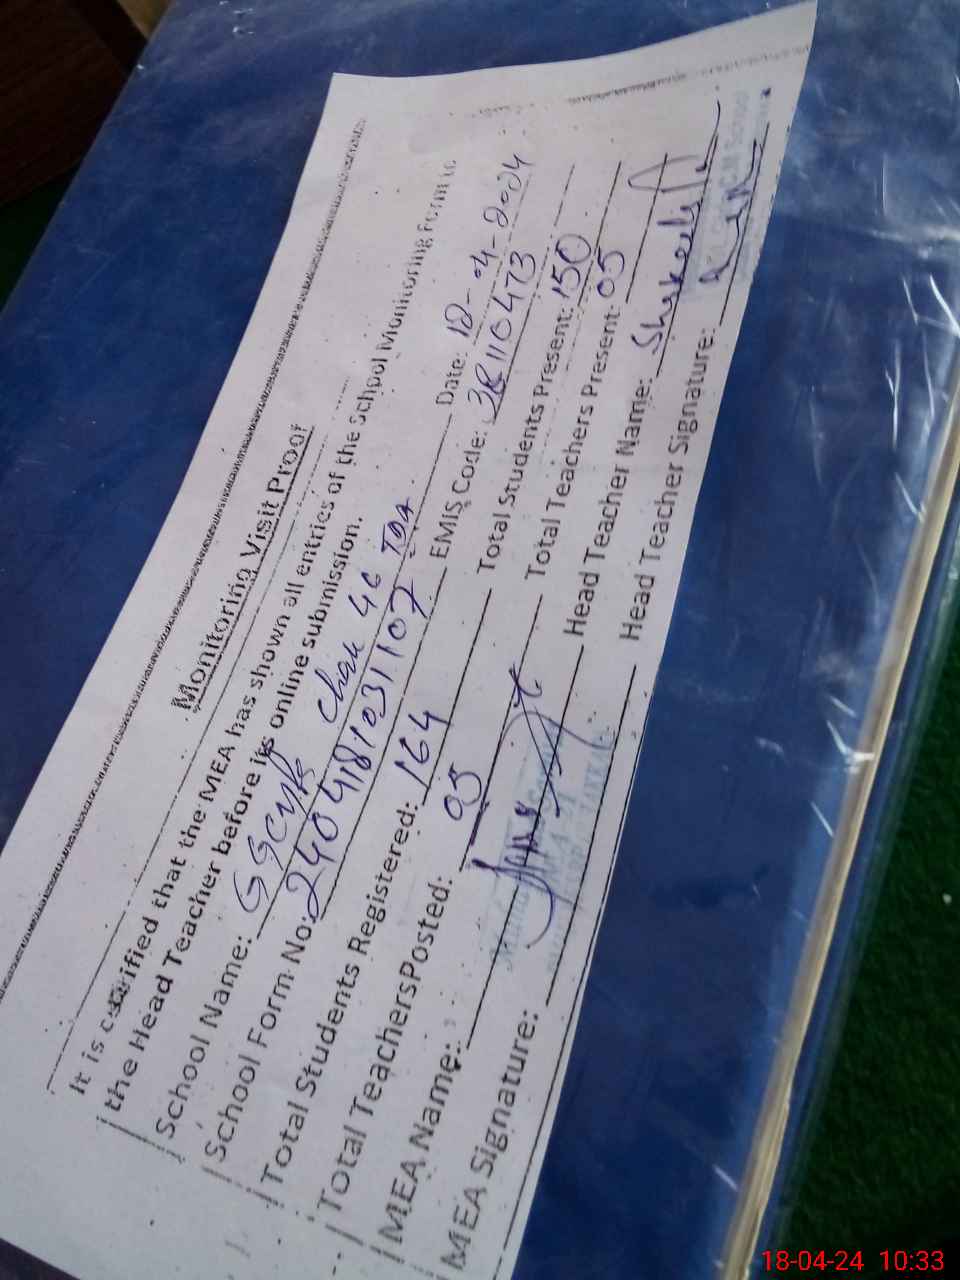 Monitoring Visit Proof
It is certified that the MEA has shown all entries of the school Monitoring Form to
the Head Teacher before its online submission.
School Name: GGCMPS Chak 46 TDA Date: 18-04-2024
School Form No: 24041810311107 EMIS Code: 38110473
Total Students Registered: 164 Total Students Present: 150
Total TeachersPosted: 05 Total Teachers Present: 05
MEA Name: Head Teacher Name:
MEA Signature: Head Teacher Signature:
18-04-24 10:33